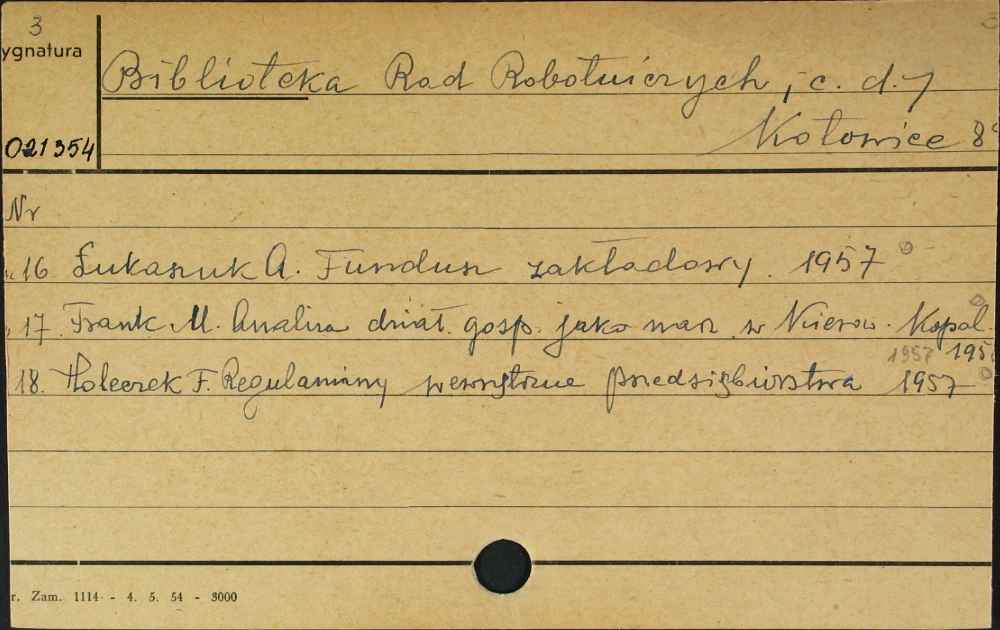 3
ygnatura
Biblioteka Rad Robotniczych, c. d. 7
021354
Katowice 8°
Nr
16 Łukaszuk A. Fundusz zakładowy. 1957
17. Frank M. Analiza dział. gosp. jako narz. w Kierow. Kopal.
1957 195
18. Holeczek F. Regulaminy wewnętrzne przedsiębiorstwa 1957
r. Zam. 1114 - 4. 5. 54 - 3000